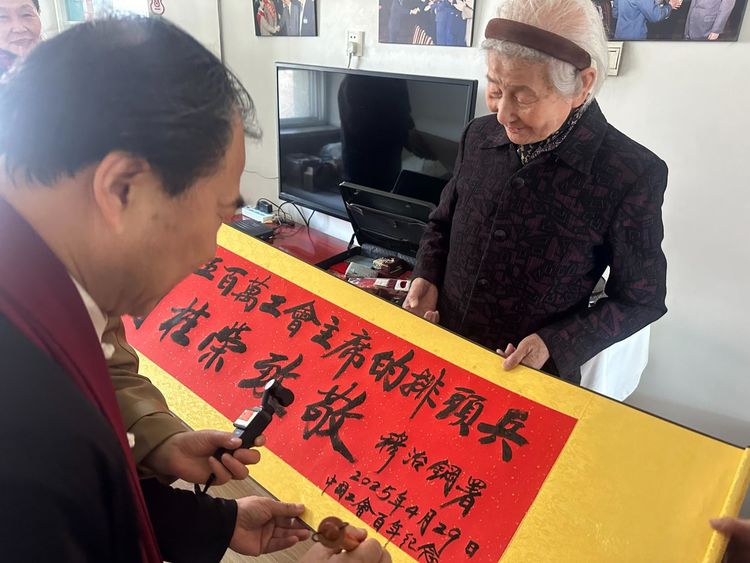 五百萬工會主席的排頭兵
桂榮致敬
穆治鋼署
2025年4月29日
中國工會百年紀念